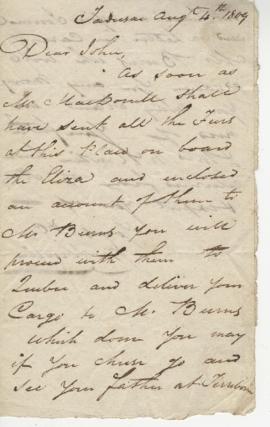 Tadusac Augt. 4th. 1809
Dear John,
As soon as
Mr MacDonell shall
have sent all the Furs
at this place on board
the Eliza and enclosed
an account of them to
Mr Burns You will
proceed with them to
Quebec and deliver your
Cargo to Mr Burns
which done You may
if you chuse go and
See Your father at